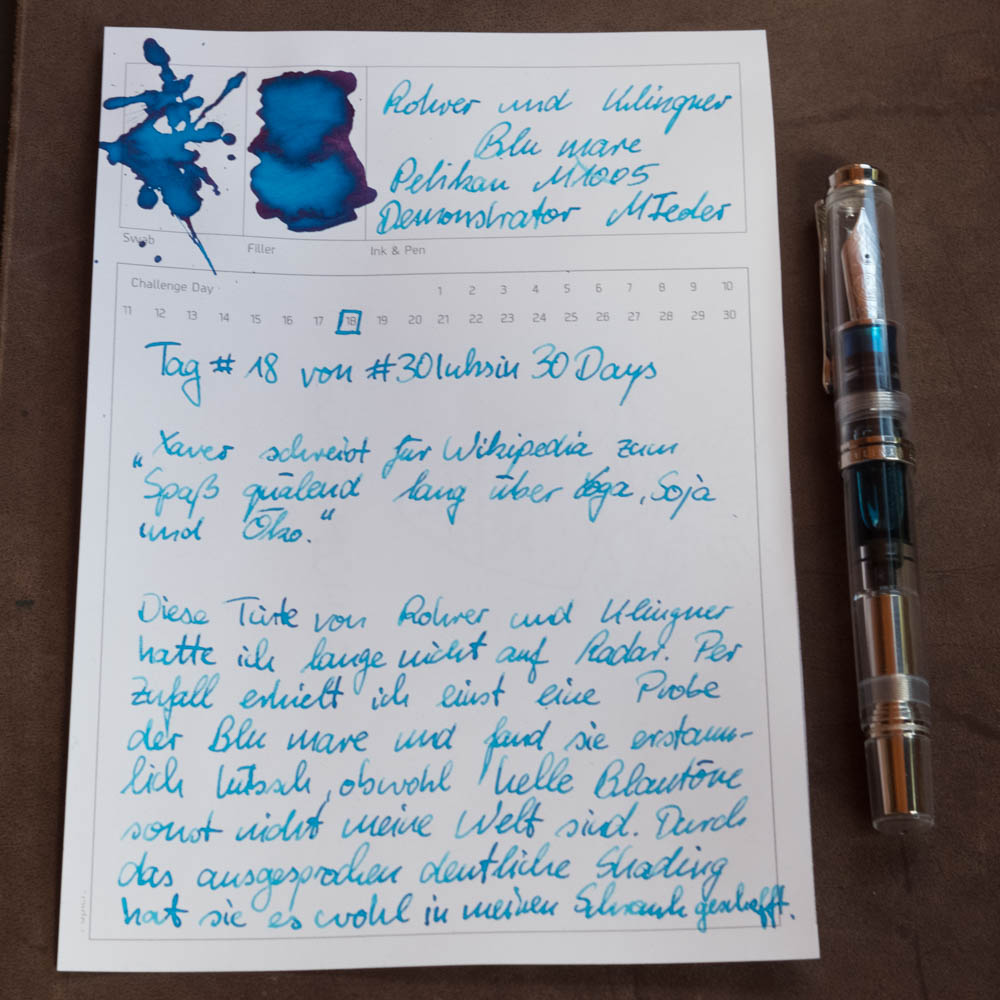 Rohrer und Klingner
Blu mare
Pelikan M1005
Demonstrator MIeder
Swab
Filler
Ink & Pen
Challenge Day
1 2 3 4 5 6 7 8 9 10
11 12 13 14 15 16 17 18 19 20 21 22 23 24 25 26 27 28 29 30
Tag #18 von #30Inksin 30 Days
„Xaver schreibt für Wikipedia zum
Spaß quälend lang über Yoga, Soja
und Öko.“
Diese Tinte von Rohrer und Klingner
hatte ich lange nicht auf Radar. Per
Zufall erhielt ich einst eine Probe
der Blu mare und fand sie erstaun-
lich hübsch, obwohl helle Blautöne
sonst nicht meine Welt sind. Durch
das ausgesprochen deutliche Shading
hat sie es wohl in meinen Schrank geschafft.